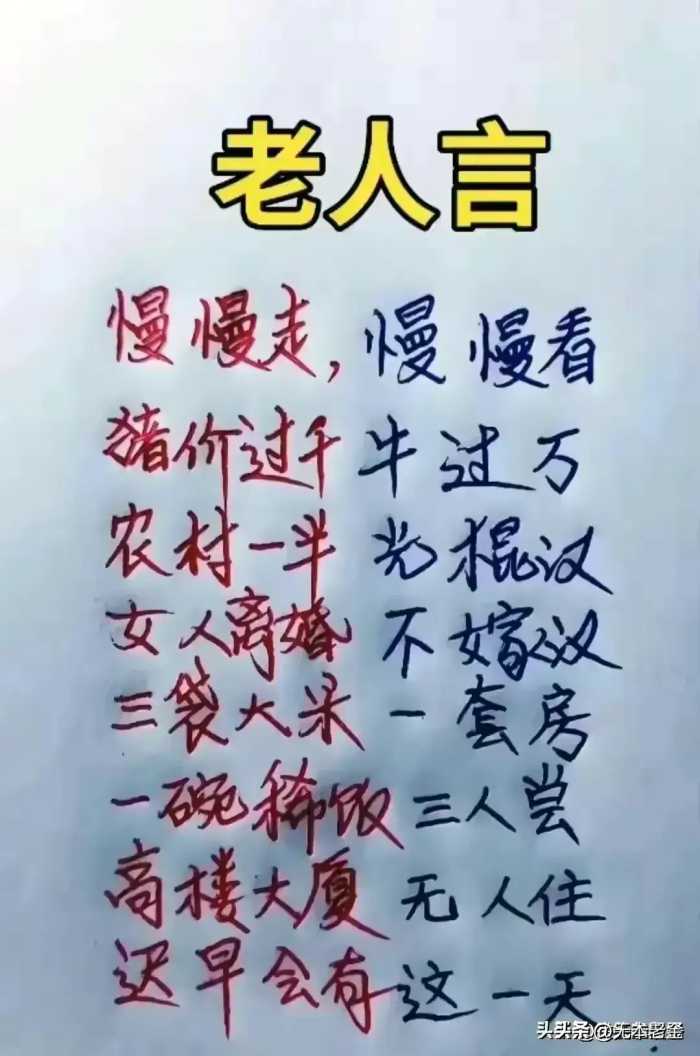 老人言
慢慢走，慢慢看
猪价过千 牛过万
农村一半 光棍汉
女人离婚 不嫁汉
三袋大米 一套房
一碗稀饭 三人尝
高楼大厦 无人住
迟早会有这一天
头条@